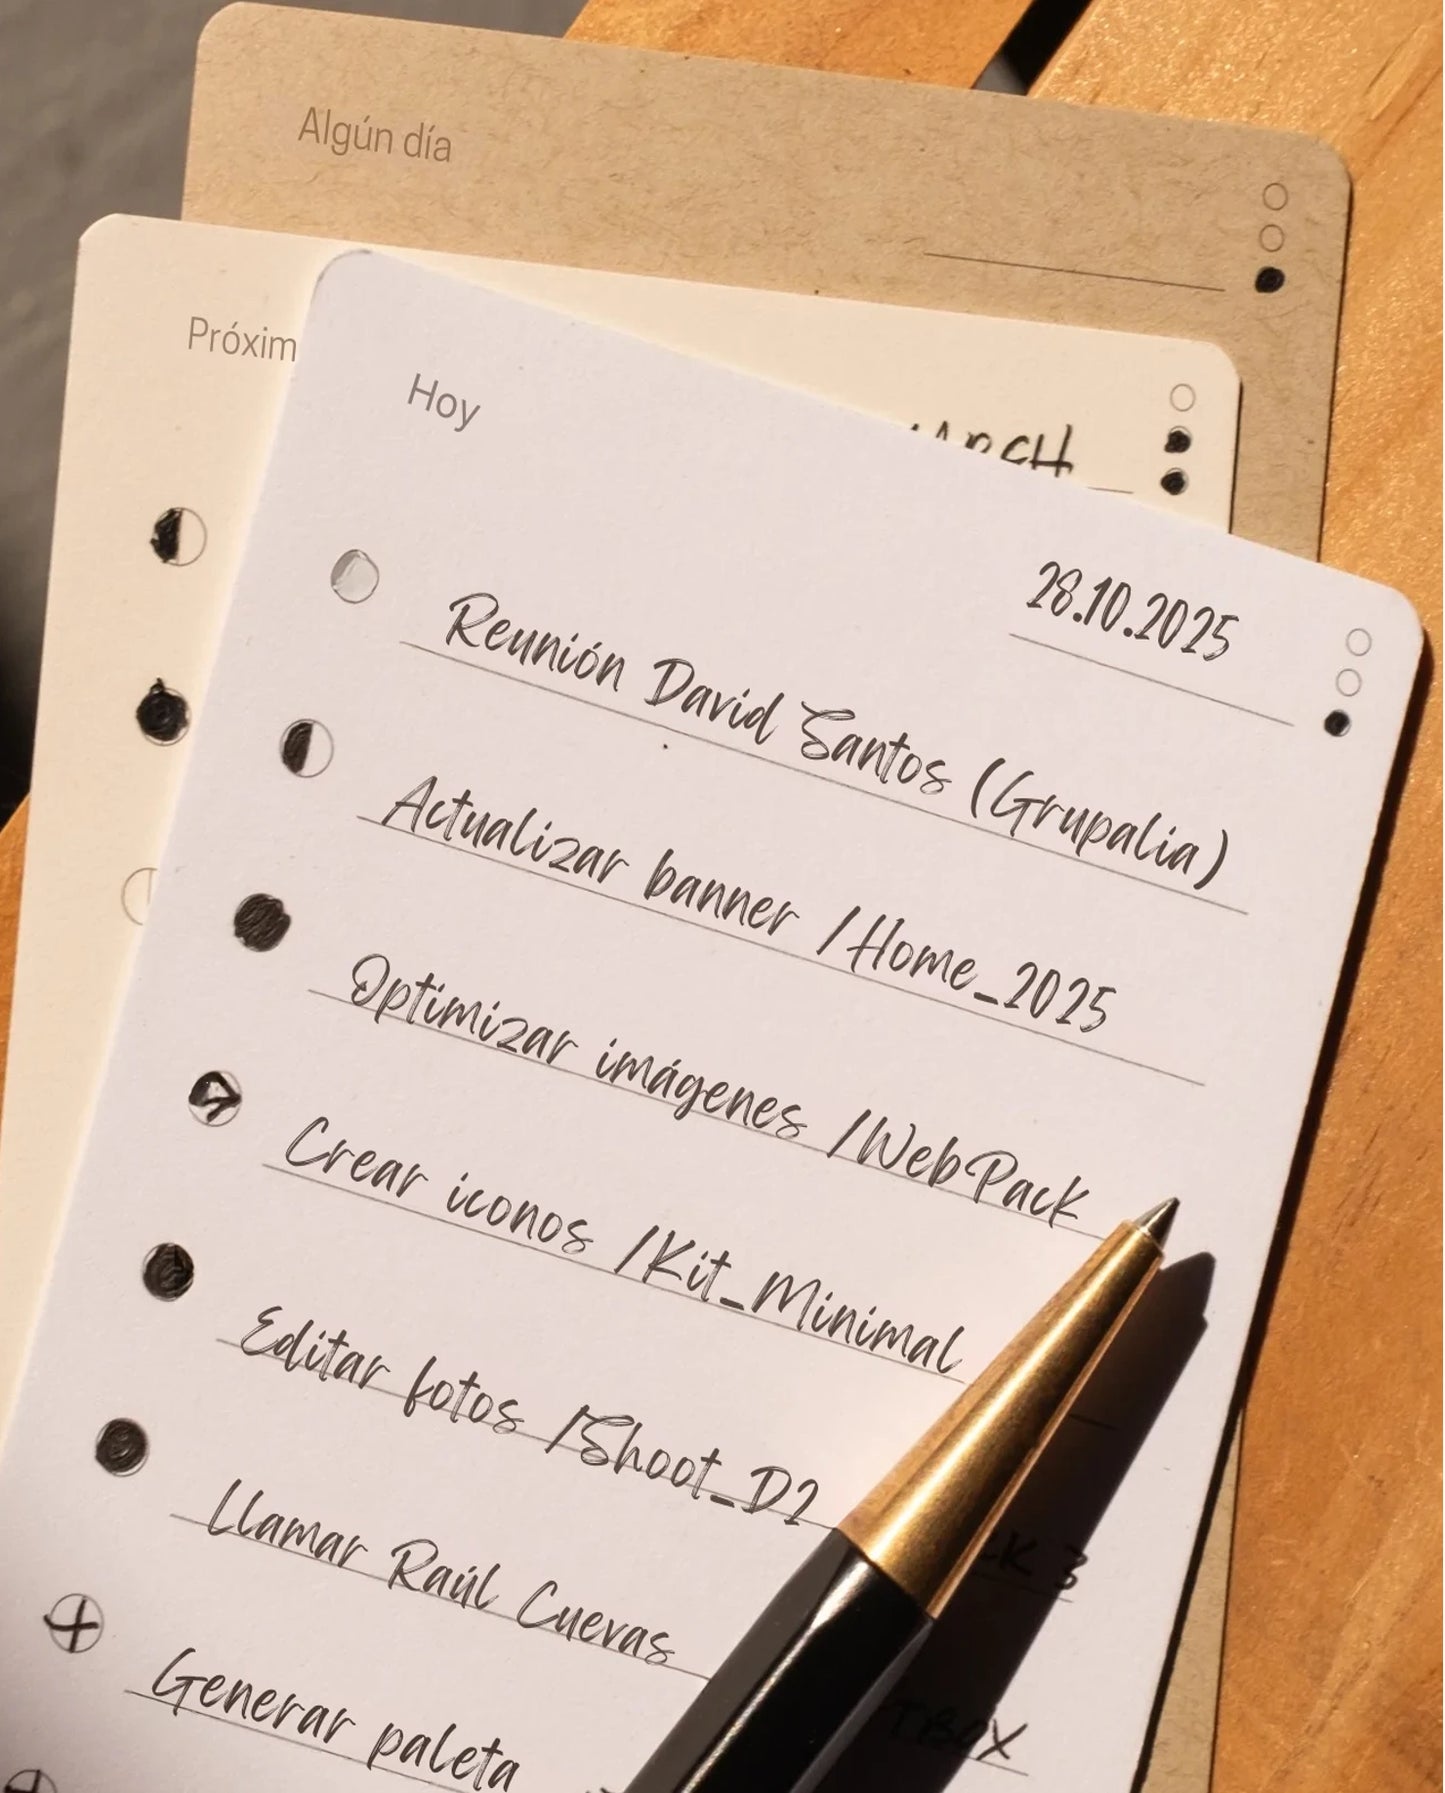 Algún día
Hoy
28.10.2025
Reunión David Santos (Grupalia)
Actualizar banner /Home_2025
Optimizar imágenes /WebPack
Crear iconos /Kit_Minimal
Editar fotos /Shoot_D2
Llamar Raúl Cuevas
Generar paleta